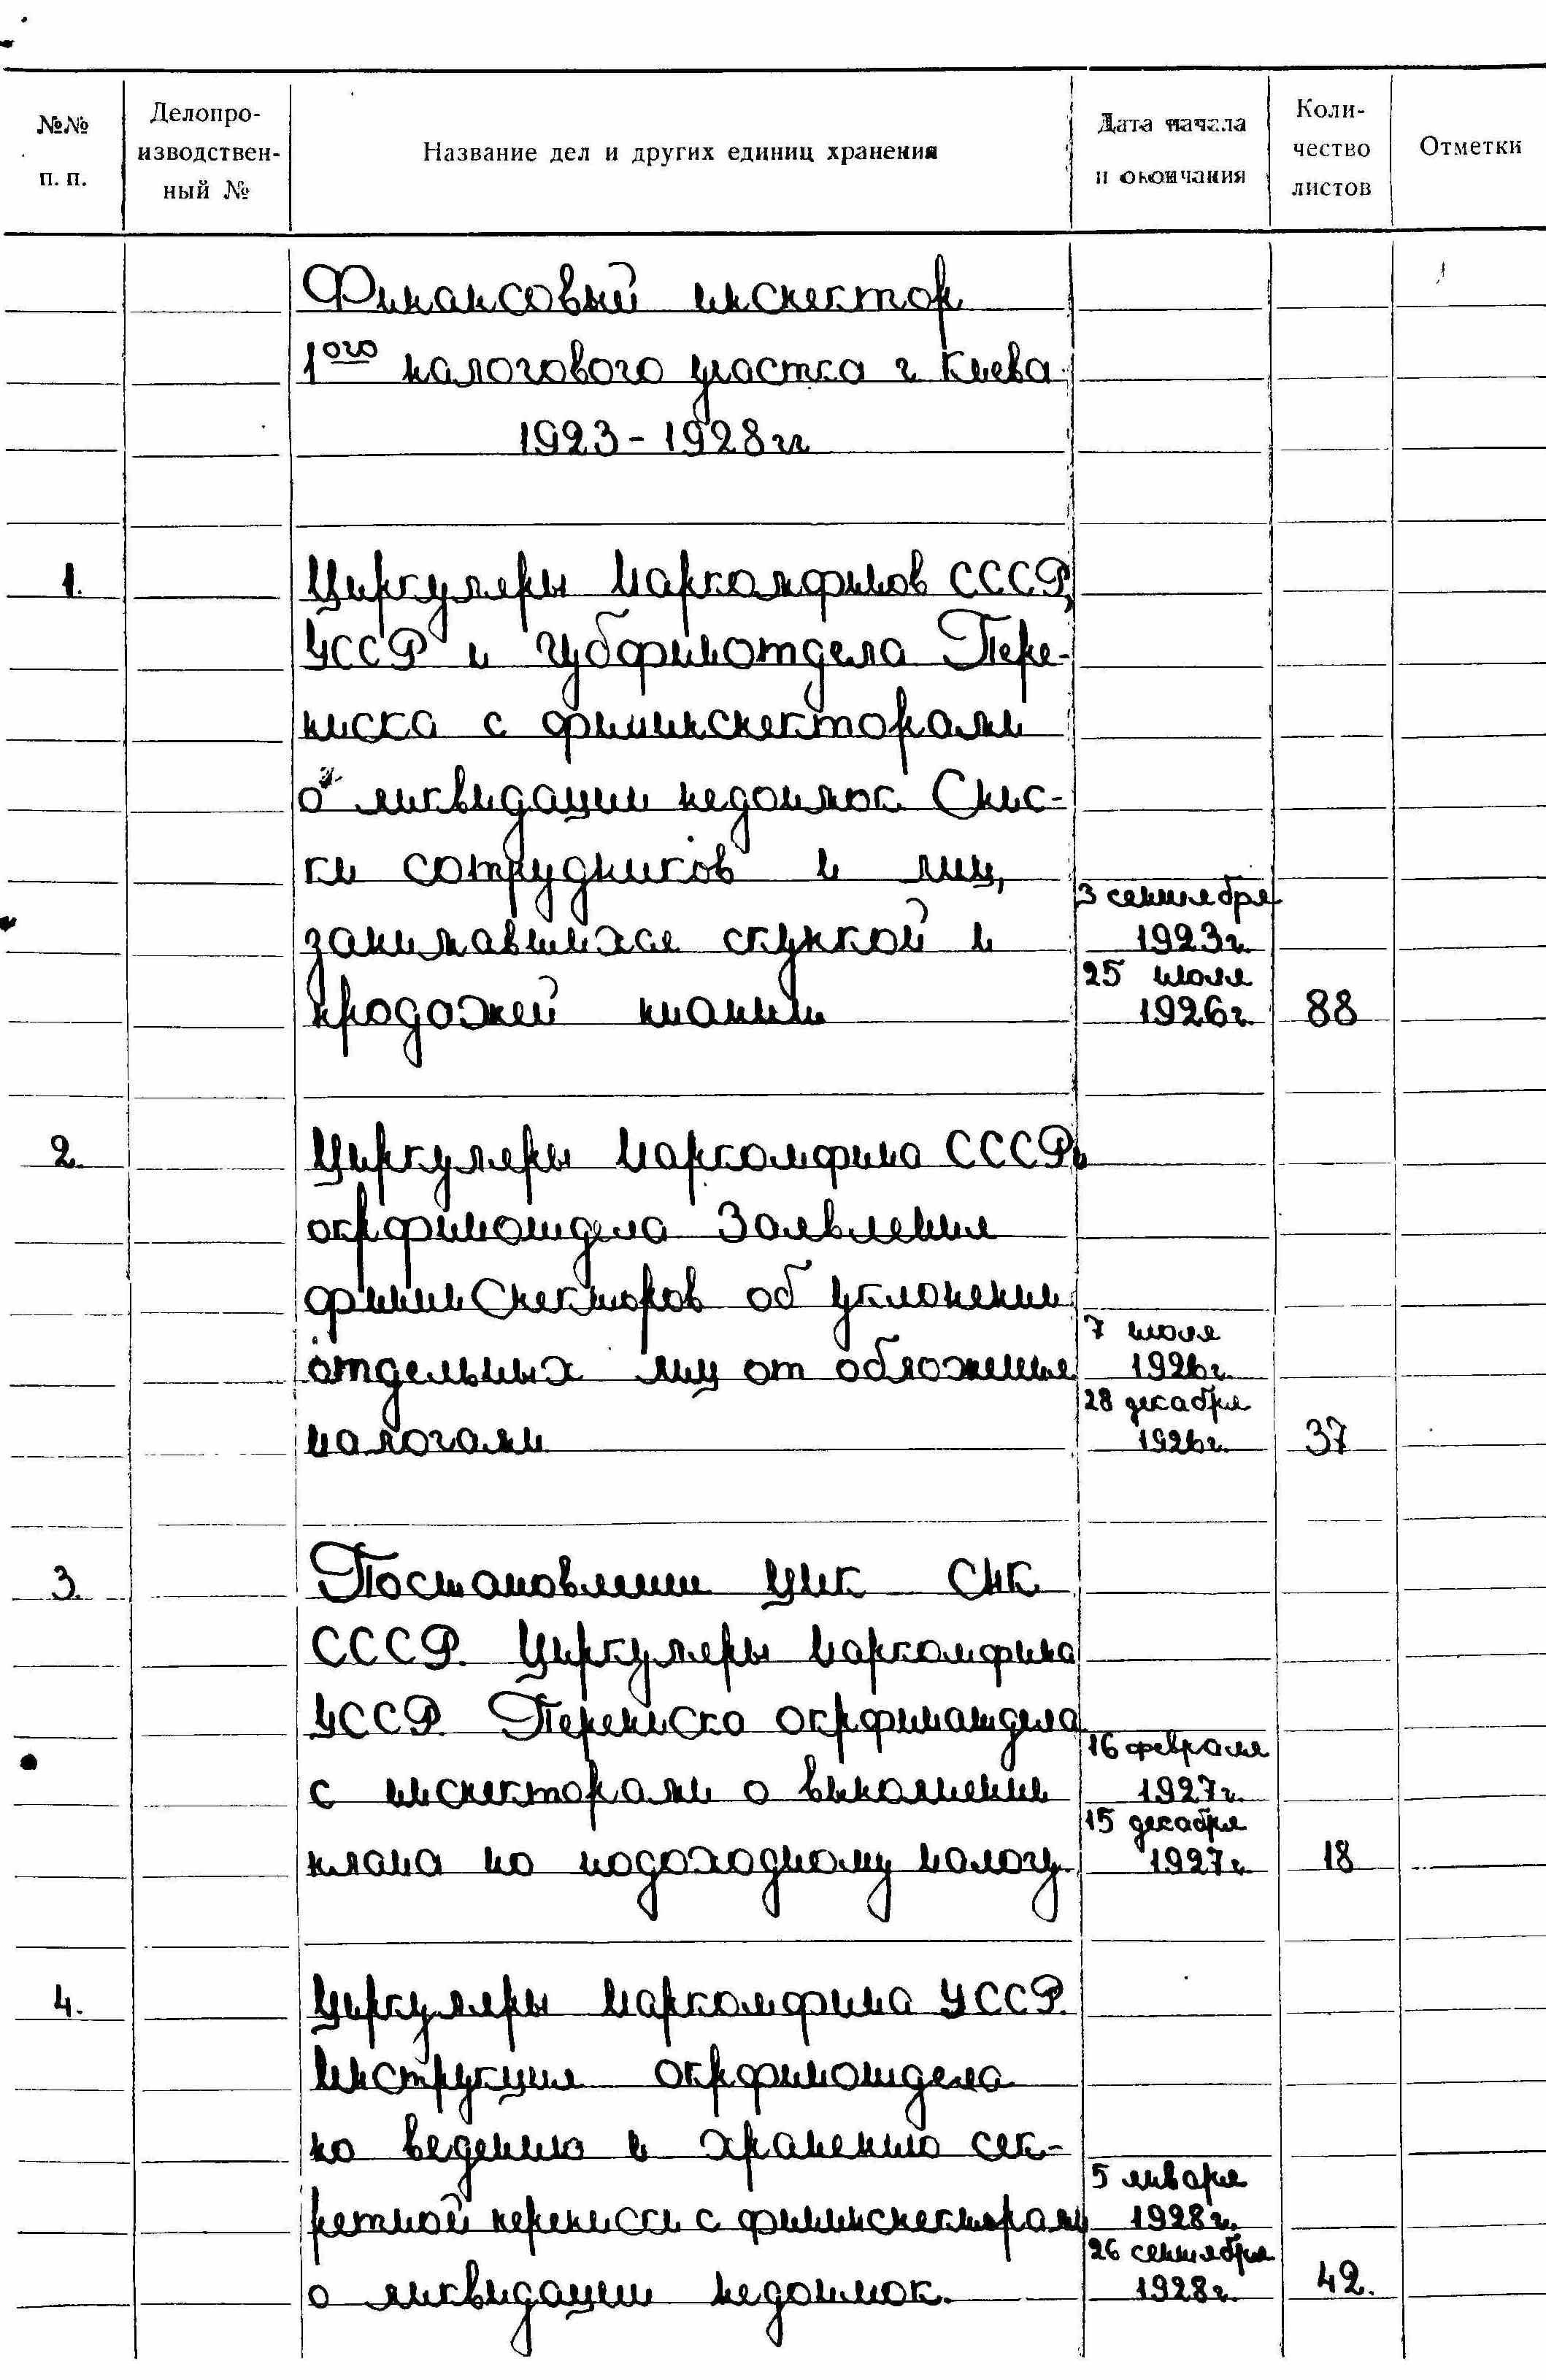 №№ п. п.
Делопро-
изводствен-
ный №
Название дел и других единиц хранения
Дата начала
и окончания
Коли-
чество
листов
Отметки
Финансовый инспектор
1ого налогового участка г. Киева
1923 - 1928 гг
1.
Циркуляры Наркомфинов СССР,
УССР и Губфинотдела Пере-
писка с фининспекторами
о ликвидации недоимок. Спис-
ки сотрудников и лиц,
занимавшихся скупкой и
продажей пианин
3 сентября
1923г.
25 июля
1926г.
88
2.
Циркуляры Наркомфина СССР и
окрфинотдела Заявления
фининспекторов об уклонении
отдельных лиц от обложения
налогами
7 июля
1926г.
28 декабря
1926г.
37
3.
Постановлении ЦИК СНК
СССР. Циркуляры Наркомфина
УССР. Переписка окрфинотдела
с инспекторами о выполнении
плана по подоходному налогу.
16 февраля
1927г.
15 декабря
1927г.
18
4.
Циркуляры Наркомфина УССР.
Инструкция окрфинотдела
по ведению и хранению сек-
ретной переписки с фининспекторами
о ликвидации недоимок.
5 января
1928г.
26 сентября
1928г.
42.